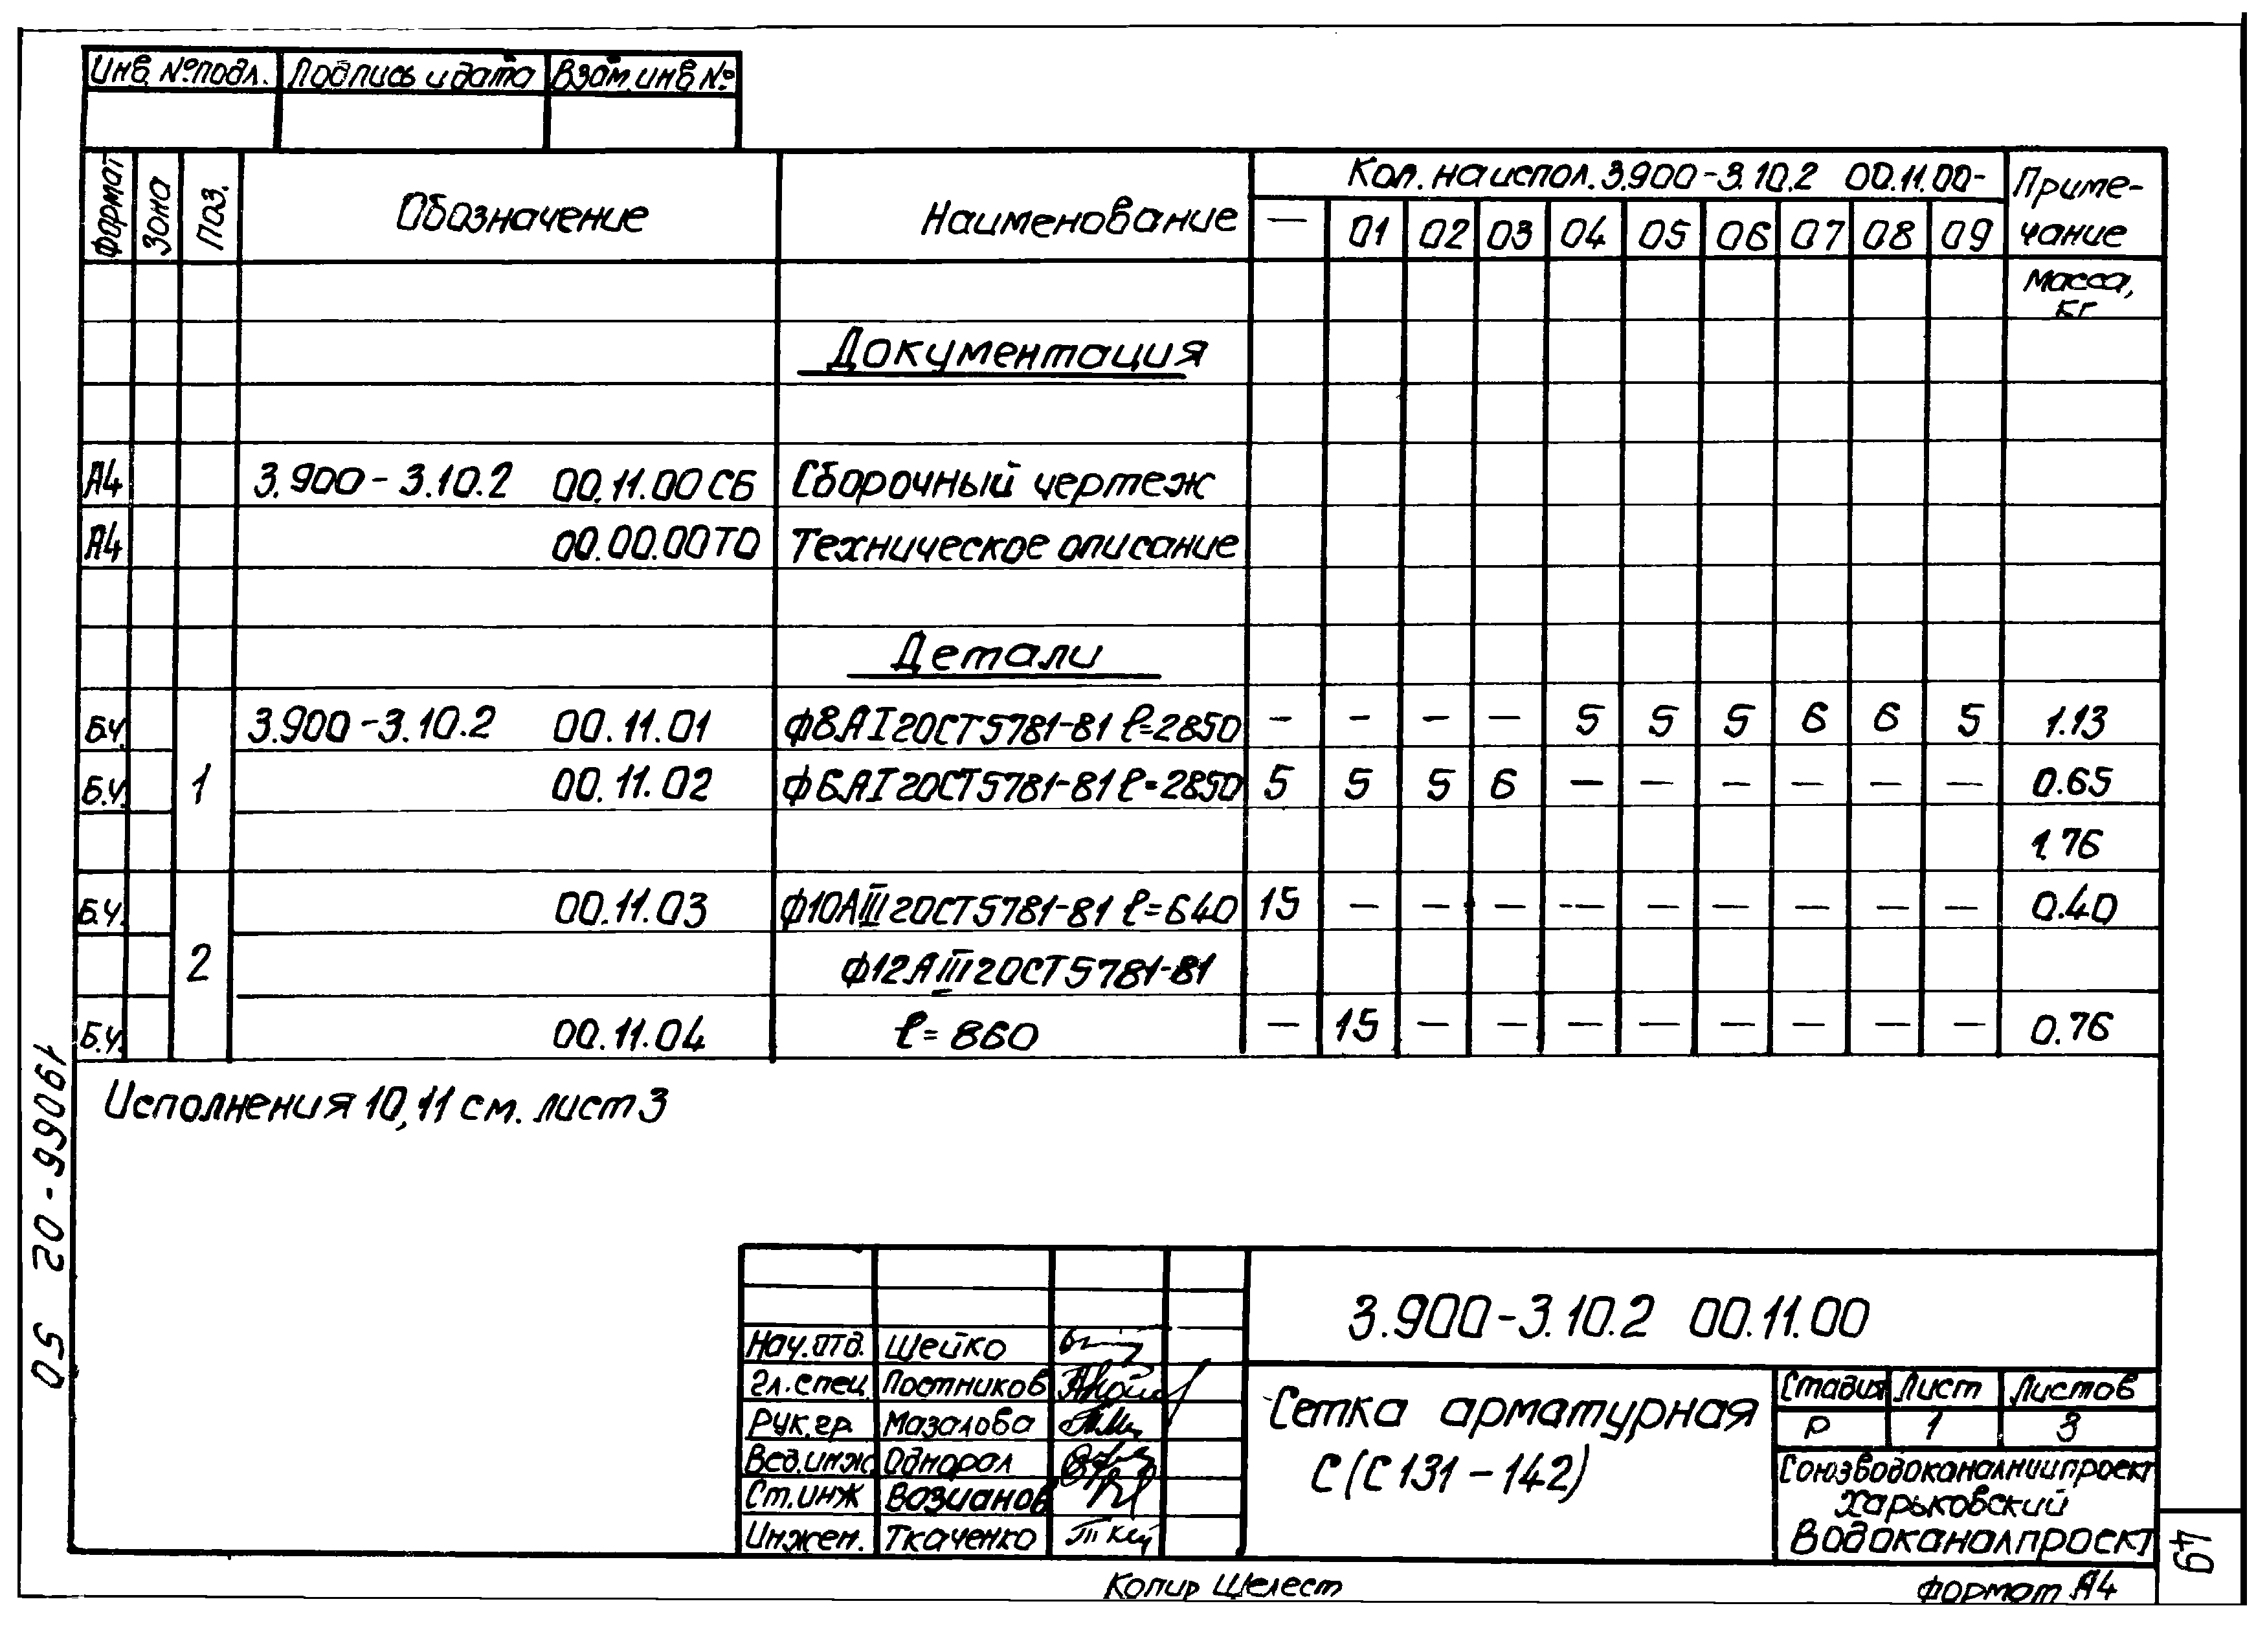 Инв. № подл. Подпись и дата Взам. инв №
Формат Зона Поз. Обозначение Наименование Кол. на испол. 3.900-3.10.2 00.11.00- Приме-
чание
— 01 02 03 04 05 06 07 08 09
Масса,
кг
Документация
А4 3.900-3.10.2 00.11.00 СБ Сборочный чертеж
А4 00.00.00 ТО Техническое описание
Детали
Б.Ч. 3.900-3.10.2 00.11.01 ф8АI ГОСТ 5781-81 ℓ=2850 – – – – 5 5 5 6 6 5 1.13
Б.Ч. 1 00.11.02 ф6АI ГОСТ 5781-81 ℓ=2850 5 5 5 6 – – – – – – 0.65
1.76
Б.Ч. 00.11.03 ф10АIII ГОСТ 5781-81 ℓ=640 15 – – – – – – – – – 0.40
2 ф12АIII ГОСТ 5781-81
Б.Ч. 00.11.04 ℓ=860 – 15 – – – – – – – – 0.76
Исполнения 10, 11 см. лист 3
19066-02 50
3.900-3.10.2 00.11.00
Нач. отд. Шейко
Гл. спец Постников
Рук. гр. Мазалова
Вед. инж. Однорал
Ст. инж Возианов
Инжен. Ткаченко
Сетка арматурная
С (С 131 - 142)
Стадия Лист Листов
Р 1 3
Союзводоканалниипроект
Харьковский
Водоканалпроект
Копир Шелест
Формат А4
49